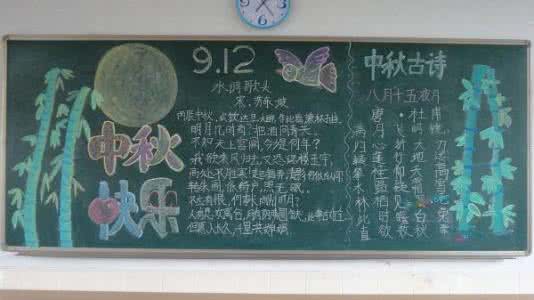 中秋
快乐
9.12
水调歌头
宋.苏东坡
丙辰中秋,欢饮达旦,大醉,作此篇兼怀子由。
明月几时有?把酒问青天。
不知天上宫阙,今夕是何年?
我欲乘风归去,又恐琼楼玉宇,
高处不胜寒!起舞弄清影,何似在人间
转朱阁,低绮户,照无眠。
不应有恨,何事长向别时圆?
人有悲欢离合,月有阴晴圆缺,此事古难全
但愿人长久,千里共婵娟。
中秋古诗
八月十五夜月
唐·杜甫
满月飞明镜,
归心折大刀。
转蓬行地远,
攀桂仰天高。
水路疑霜雪,
林栖见羽毛。
此时瞻白兔,
直欲数秋毫。